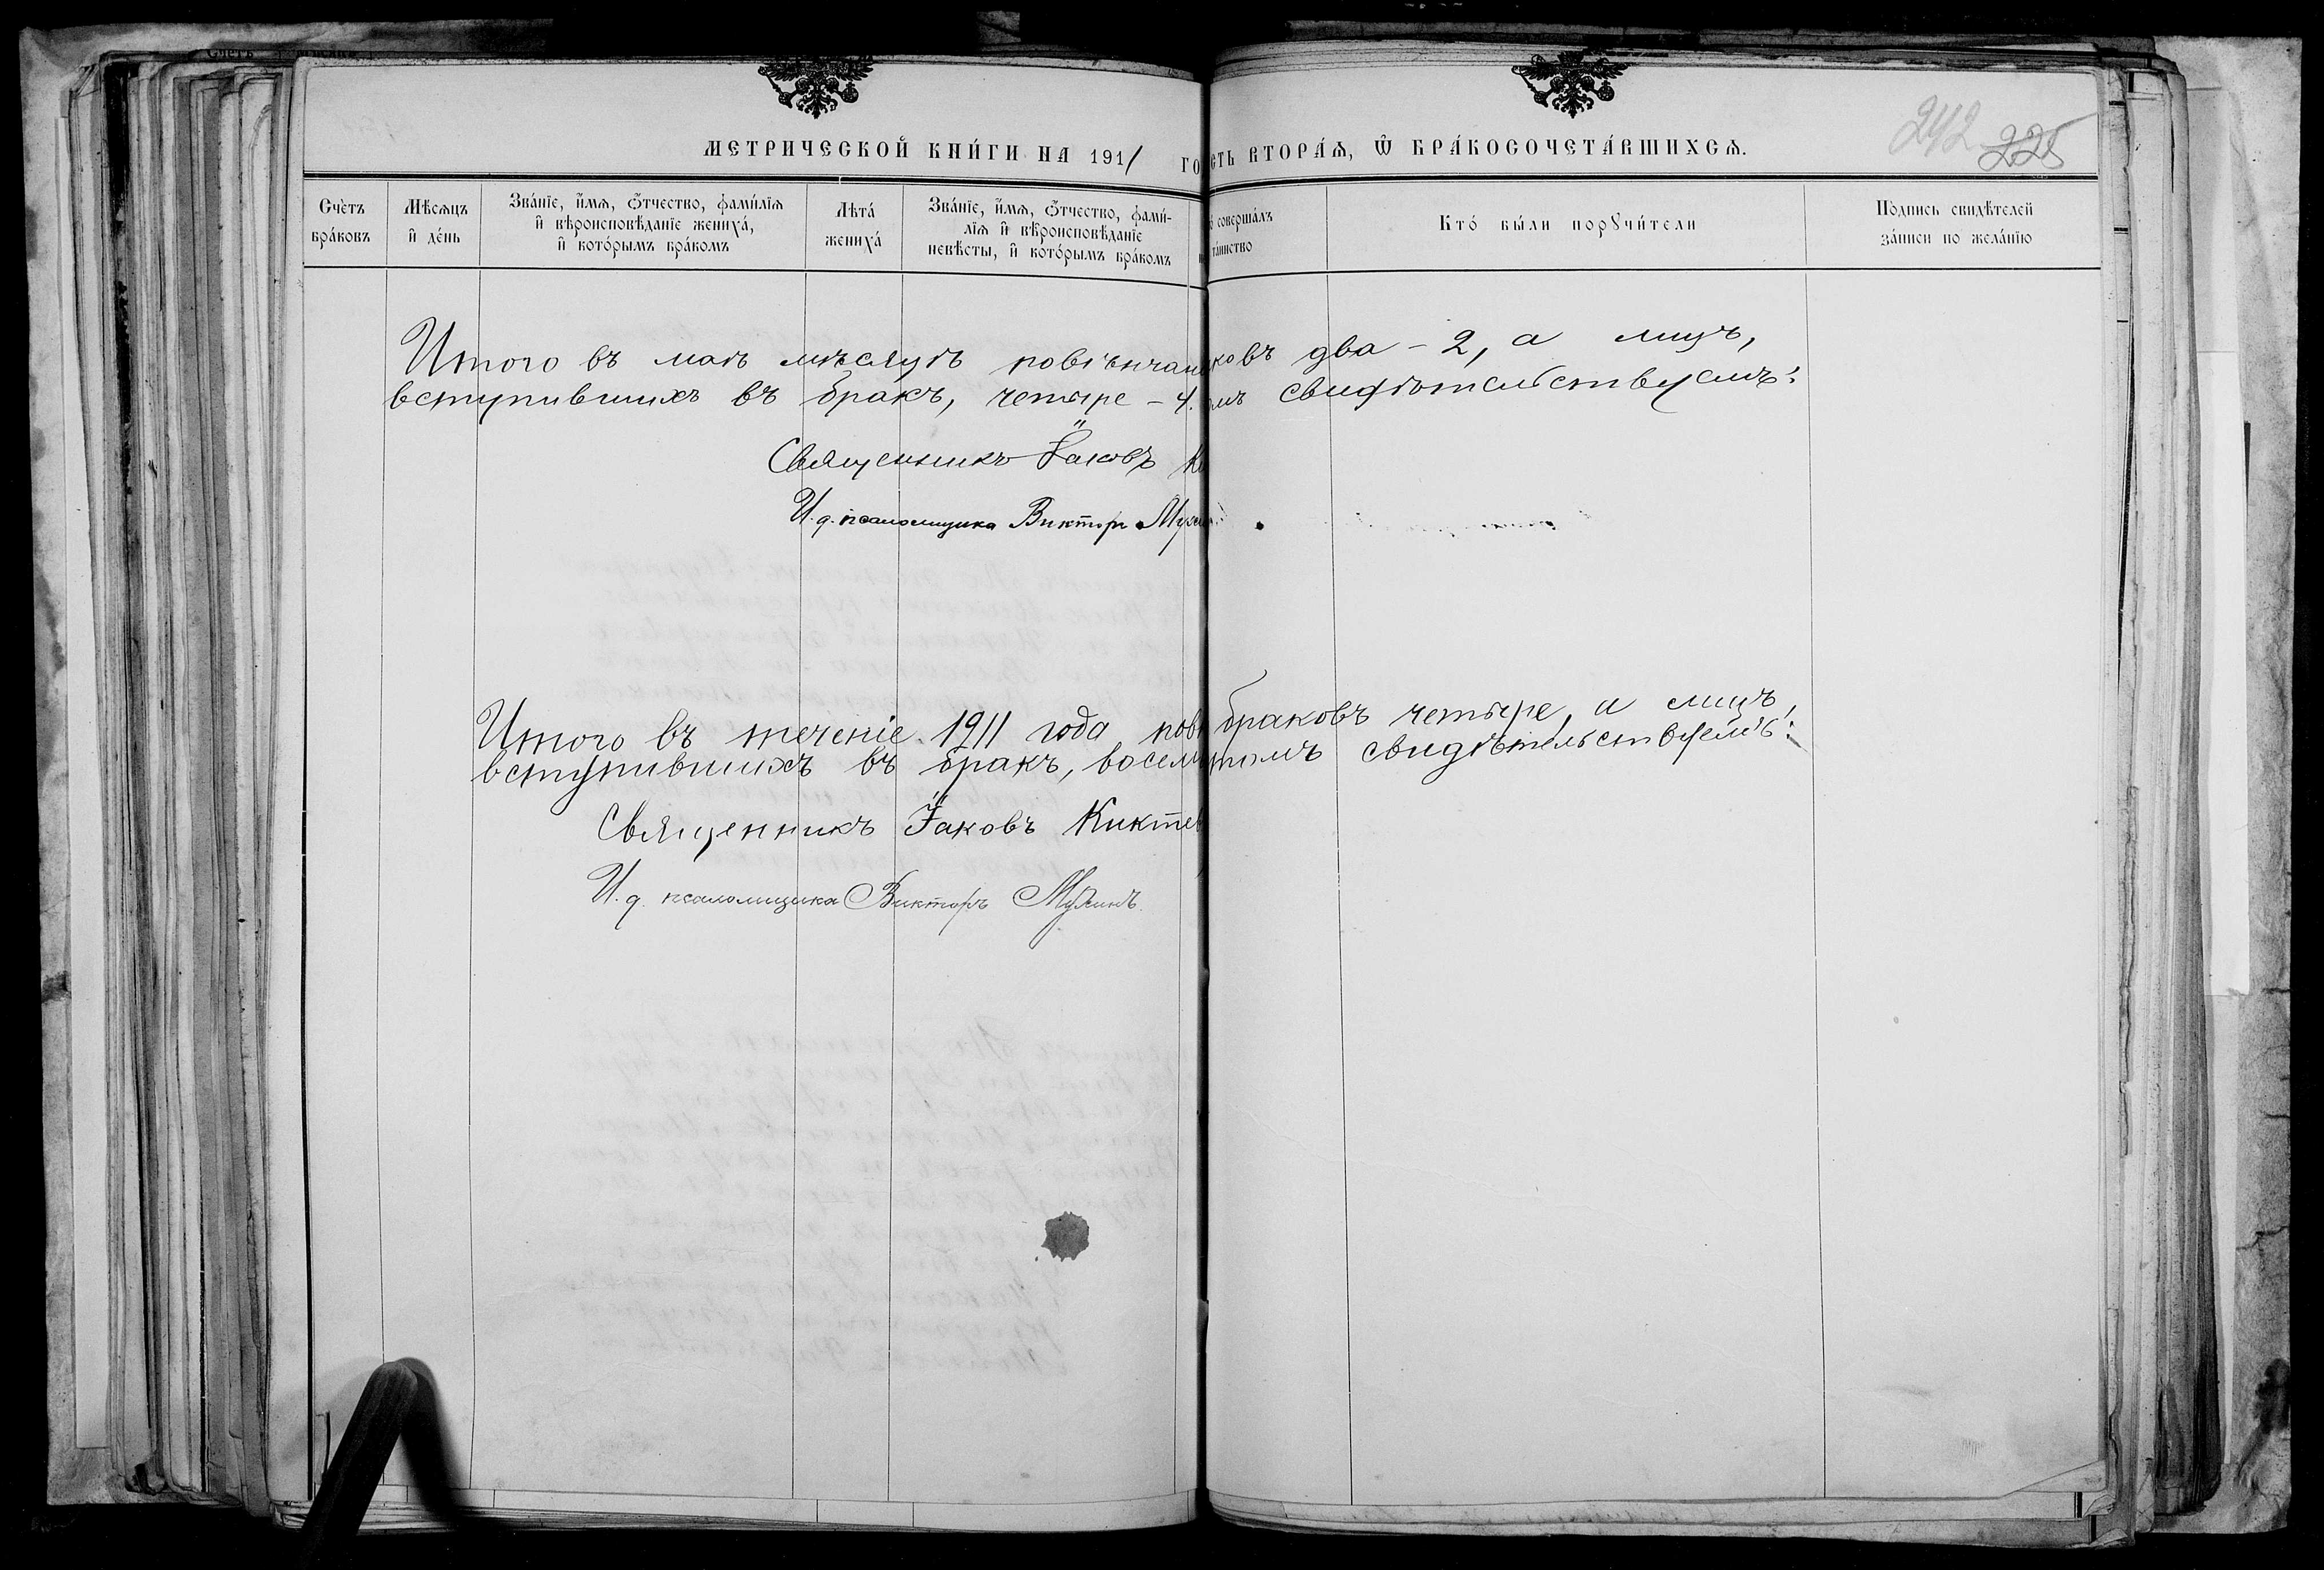 МЕТРИЧЕСКОЙ КНИ́ГИ НА 1911 ГО
СТЬ ВТОРА́Ѧ, Ѽ БРА́КОСОЧЕТА́ВШИХСѦ.
242 225
Сче́тъ бра́ковъ
Мѣ́сѧцъ и҆ де́нь
Зва́нїе, и҆́мѧ, ѻ҆́тчество, фами́лїѧ
и҆ вѣроисповѣ́данїе жениха́,
и҆ кото́рымъ бра́комъ
Лѣта́ жениха́
Зва́нїе, и҆́мѧ, ѻ҆́тчество, фами́-
лїѧ и҆ вѣроисповѣ́данїе
невѣ́сты, и҆ кото́рымъ бра́комъ
соверша́лъ
та́инство
Кто́ бы́ли порꙋчи́тели
По́дпись свидѣ́телей
за́писи по жела́нїю
Итого въ маѣ мѣсяцѣ повѣнчан ковъ два - 2, а лицъ,
вступившихъ въ бракъ, четыре - 4. омъ свидѣтельствуемъ:
Священникъ Іаковъ Ки
И. д. псаломщика Викторъ
Итого въ теченіе 1911 года повѣ браковъ четыре, а лицъ,
вступившихъ въ бракъ, восемь томъ свидѣтельствуемъ:
Священникъ Іаковъ Киктев
И. д. псаломщика Викторъ